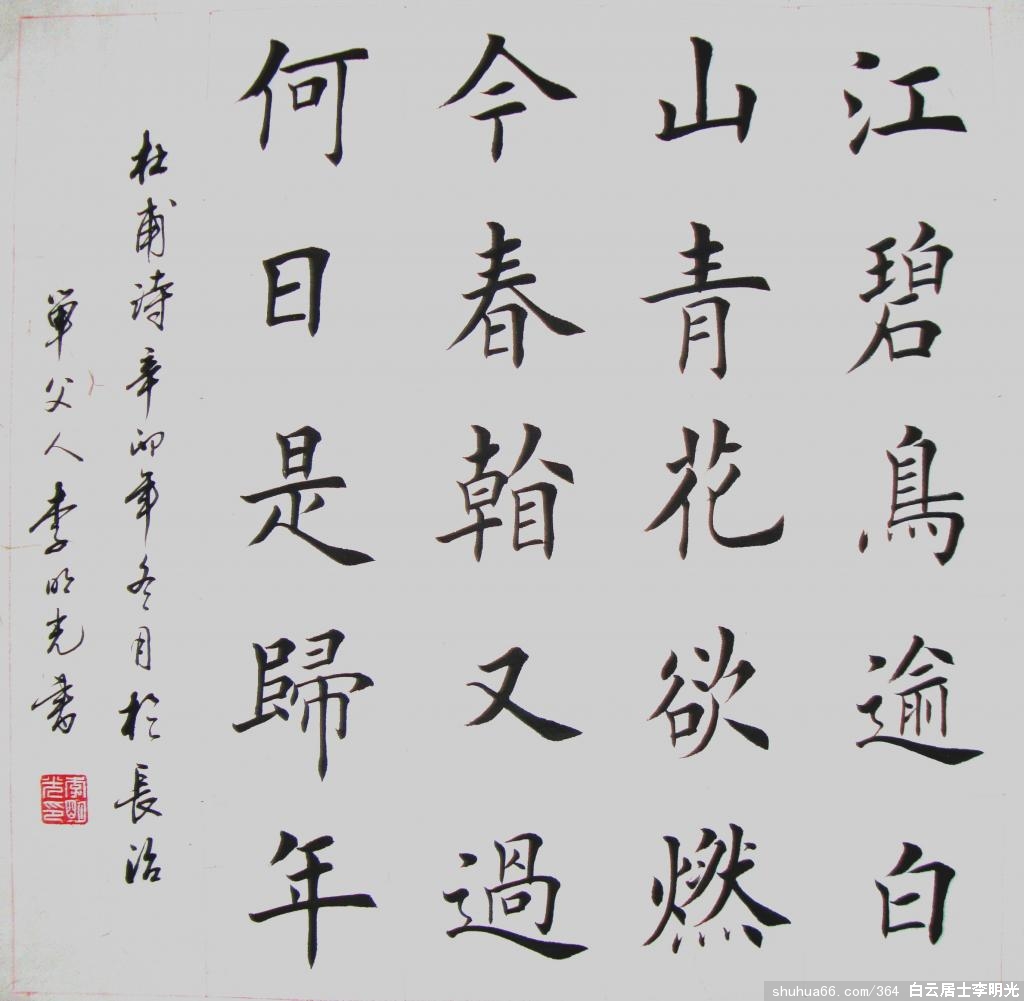 江碧鳥逾白
山青花欲燃
今春又過
何日是歸年
杜甫詩辛卯年冬月於長治
單父人李明光書
李明光印
shuhua66.com/364 白云居士李明光